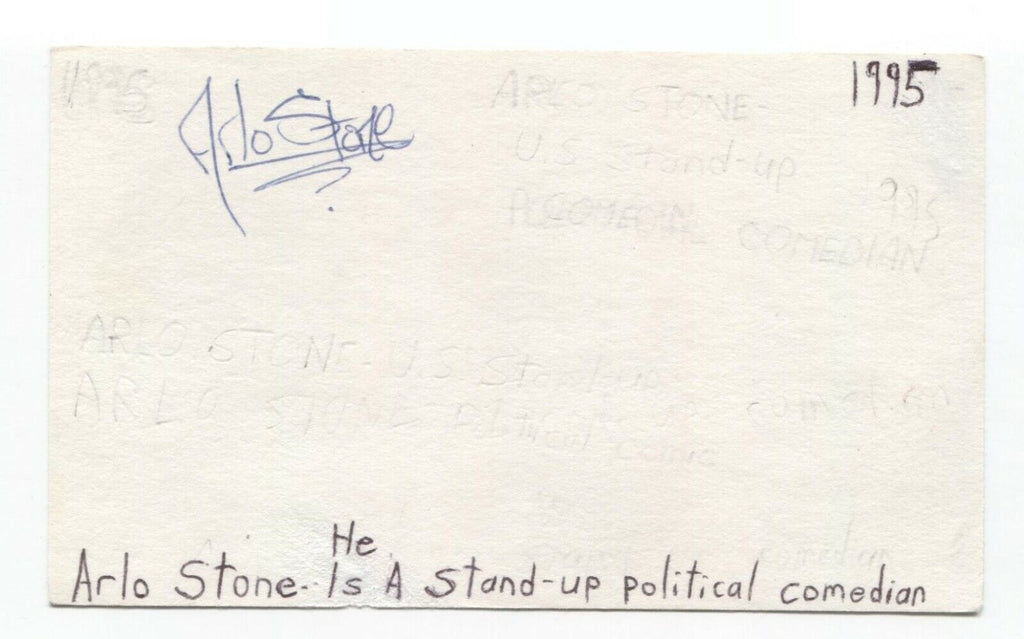 1995
1995
Arlo Stone
ARLO STONE-
U.S Stand-up
995
COMEDIAN
ARLO STONE - U.S Stand-up
ARLO STONE
comic
comedian
He
Arlo Stone- Is A stand-up political comedian